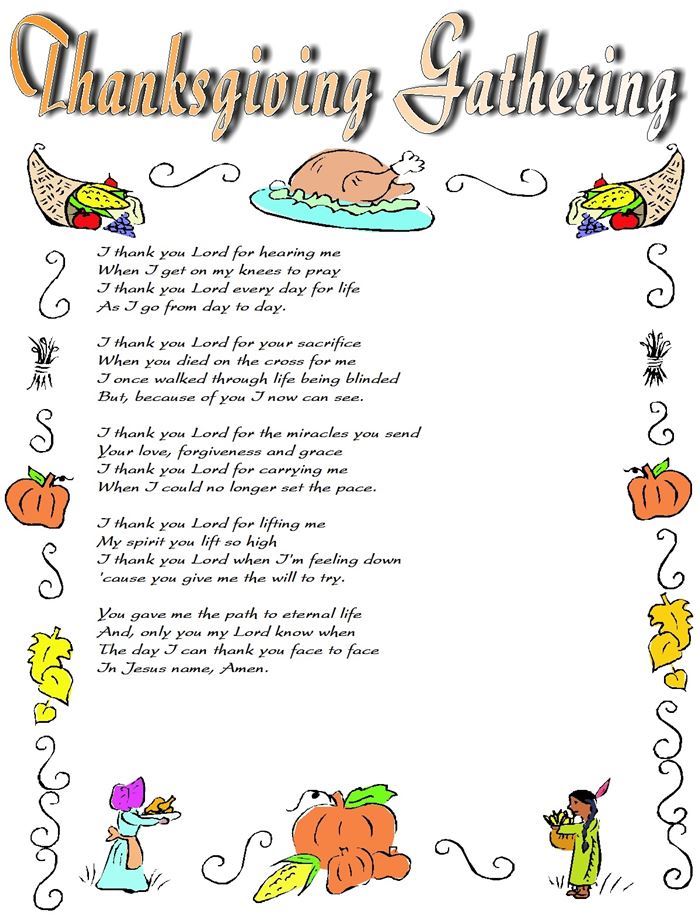 Thanksgiving Gathering
I thank you Lord for hearing me
When I get on my knees to pray
I thank you Lord every day for life
As I go from day to day.
I thank you Lord for your sacrifice
When you died on the cross for me
I once walked through life being blinded
But, because of you I now can see.
I thank you Lord for the miracles you send
Your love, forgiveness and grace
I thank you Lord for carrying me
When I could no longer set the pace.
I thank you Lord for lifting me
My spirit you lift so high
I thank you Lord when I'm feeling down
'cause you give me the will to try.
You gave me the path to eternal life
And, only you my Lord know when
The day I can thank you face to face
In Jesus name, Amen.